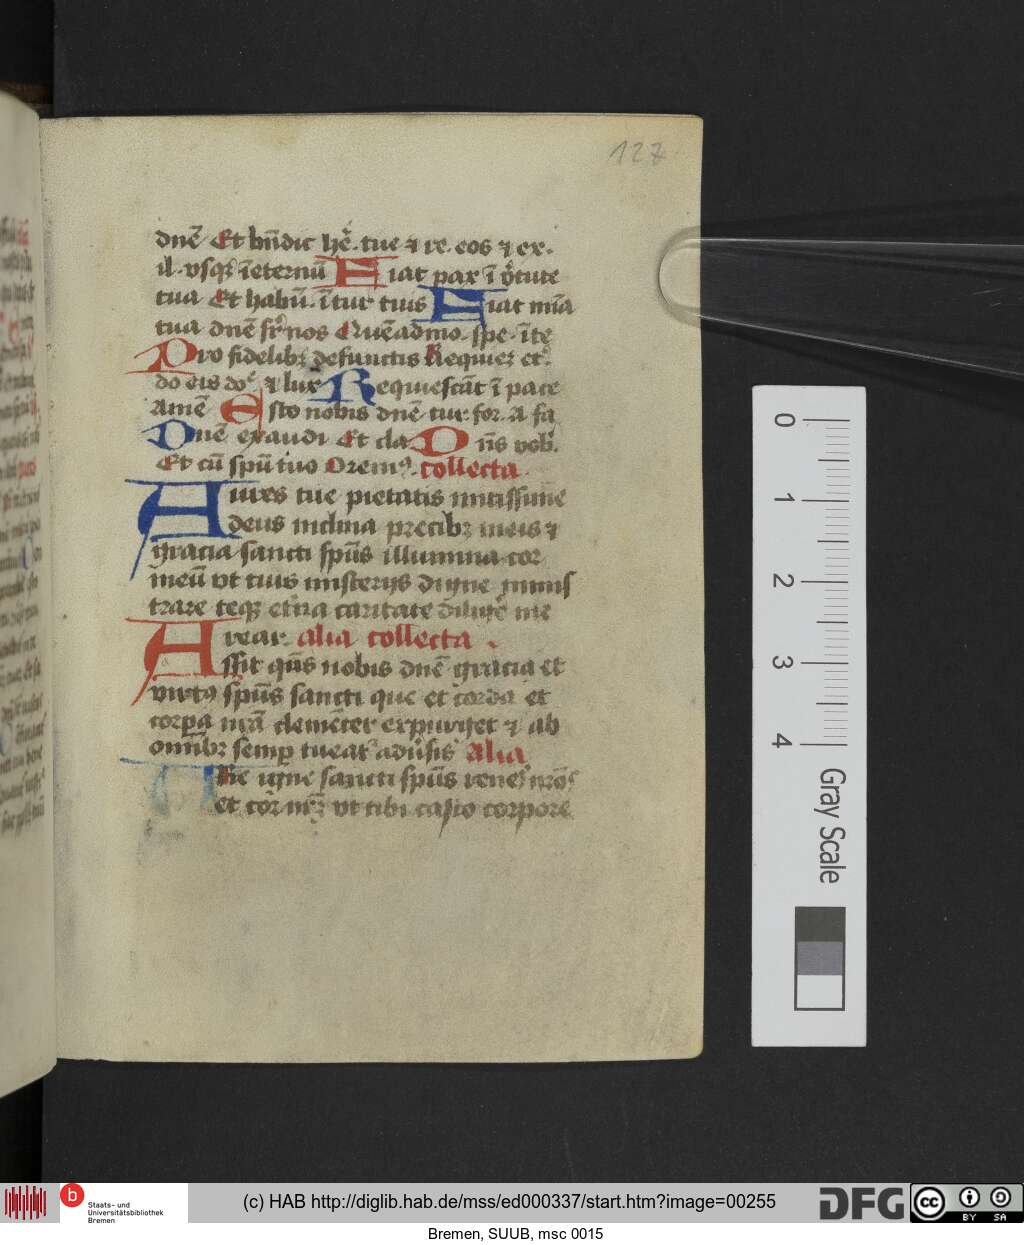 127
dnē Et bn̄dic hẽ. tue ⁊ re. eos ⁊ ex.
il. vsqꝫ īeternū Fiat pax ī v̾tute
tua Et habū. ī tur tuis Fiat mīa
tua dnē sr̄ nos Quēadmo. spe. ī te
Pro fidelibꝫ defunctis Requiē etꝰ
do eis do ⁊ lux Requiescāt ī pace
Amē Esto nobis dnē tur. for. A fa
Dnē exaudi Et cla Dn̄s vob.
Et cū spū tuo Oremꝰ. collecta
Aures tue pietatis mitissime
deus inclina precibꝫ meis ⁊
gracia sancti spūs illumina cor
meū vt tuis misterijs digne minis
trare teqꝫ etn̄a caritate diligē me
rear. alia collecta.
Assit qūs nobis dnē gracia et
virtꝰ spūs sancti que et corda et
corpa nrā clemēter expurget ⁊ ab
omībꝫ semp tueatᷣ adūsis Alia
Vre igne sancti spūs renes nrōs
et cor nrm̄ vt tibi casto corpore
0
1
2
3
4
Gray Scale
b
Staats- und
Universitätsbibliothek
Bremen
(c) HAB http://diglib.hab.de/mss/ed000337/start.htm?image=00255
DFG
cc
BY SA
Bremen, SUUB, msc 0015